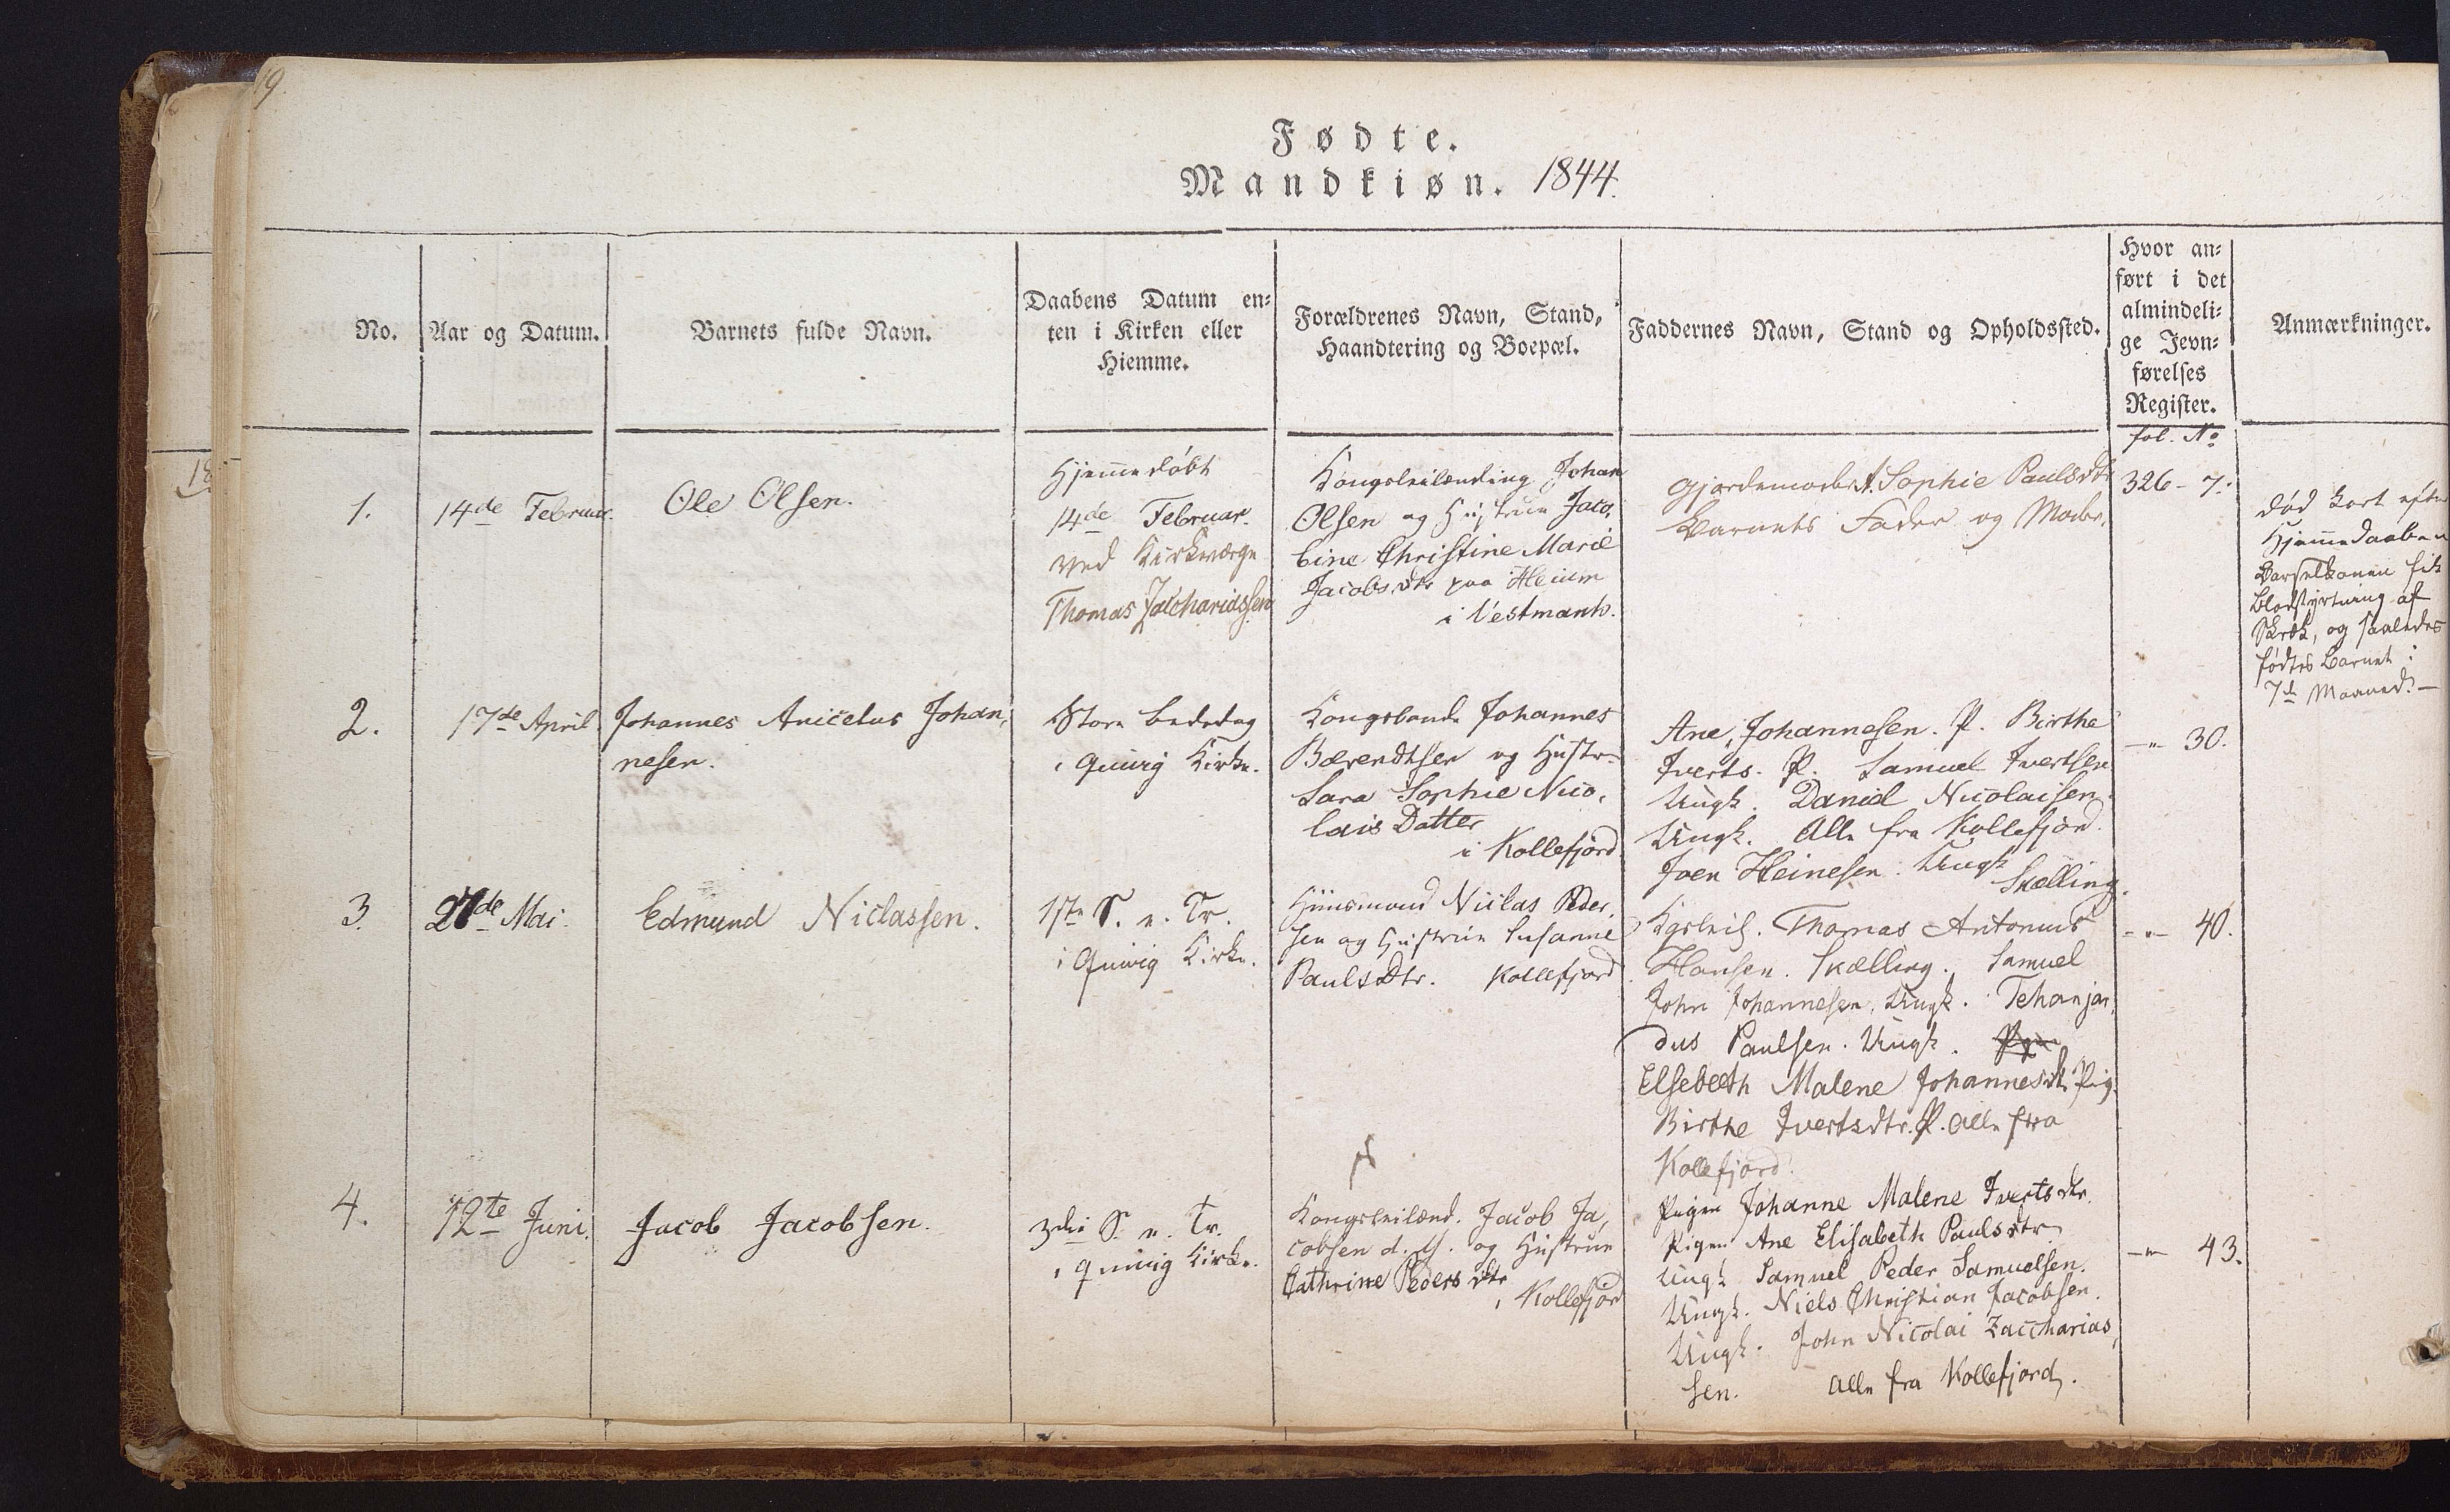 19.
Fødte.
Mandkiøn. 1844.
No.
Aar og Datum.
Barnets fulde Navn.
Daabens Datum en-
ten i Kirken eller
Hiemme.
Forældrenes Navn, Stand,
Haandtering og Boepæl.
Faddernes Navn, Stand og Opholdssted.
Hvor an-
ført i det
almindeli-
ge Jevn-
førelses
Register.
Anmærkninger.
fol. No
1.
14de Februar.
Ole Olsen.
Hjemmedøbt
14de Februar.
ved Kirkeværge
Thomas Zachariassen
Kongsleilænding Johan
Olsen og Hustrue Jaco,
bine Christine Marie
Jacobsdtr paa Heium
i Vestmanh.
Gjordemoder A. Sophie Paulsdtr
Barnets Fader og Moder.
326 - 7.
død kort efter
Hjemmedaaben
Barselkonen fik
Blodstyrtning af
Skræk, og saaledes
fødtes Barnet i
7de Maaned. -
2.
17de April.
Johannes Anicetus Johan,
nesen.
Store Bededag
i Qvivig Kirke.
Kongsbonde Johannes
Bærendtsen og Hustr-
Sara Sophie Nico,
lais Datter
i Kollefjord
Ane, Johannesen. P. Birthe
Iverts. P. Samuel Ivertsen
Ungk. Daniel Nicolaisen.
Ungk. Alle fra Kollefjord.
Joen Heinesen. Ungk
Skælling.
-"- 30.
3.
27de Mai.
Edmund Niclassen.
1ste S. e. Tr.
i Qvivig Kirke.
Huusmand Niclas Peder,
sen og Hustrue Susanne
PaulsDtr. Kollefjord
Kgsleil. Thomas Antonius
Hansen. Skælling. Samuel
John Johannesen. Ungk. Tehanjan,
dus Paulsen. Ungk.
Elsebeth Malene Johannesdt. Pig.
Birthe Ivertsdtr. P. alle fra
Kollefjord.
-"- 40.
4.
12te Juni.
Jacob Jacobsen.
3die S. e. Tr.
i Qvivig Kirke.
Kongsleilænd. Jacob Ja,
cobsen d. y. og Hustrue
Cathrine Pedersdtr
i Kollefjord
Pigen Johanne Malene Ivertsdtr.
Pigen Ane Elisabeth Paulsdtr
Ungk Samuel Peder Samuelsen.
Ungk. Niels Christian Jacobsen.
Ungk. John Nicolai Zaccharias,
sen. alle fra Kollefjord.
-"- 43.